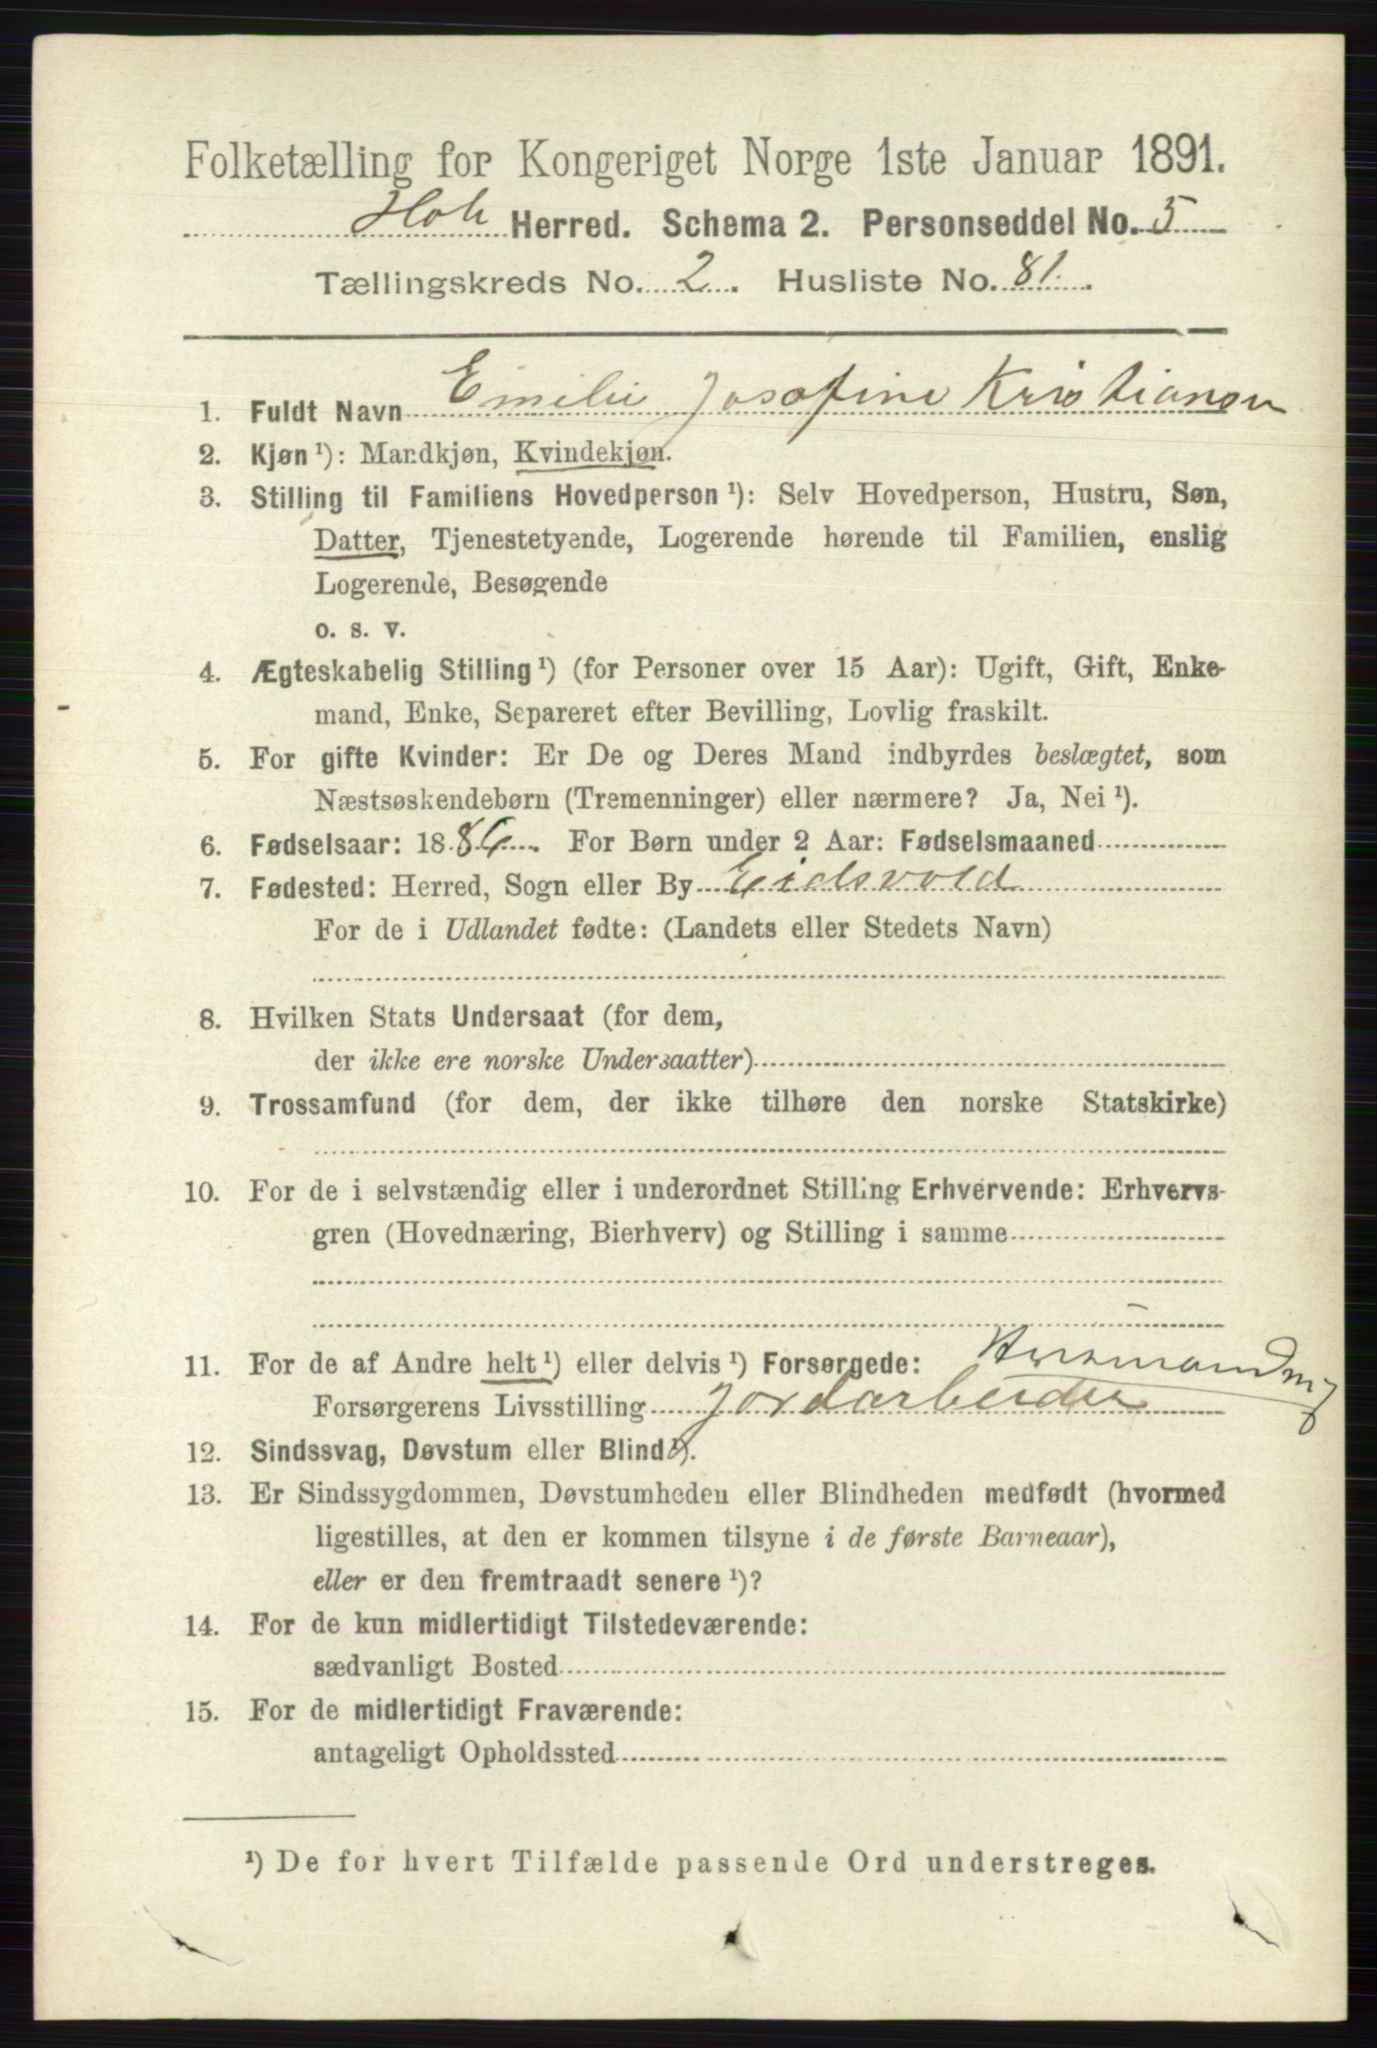 Folketælling for Kongeriget Norge 1ste Januar 1891.
Hole Herred. Schema 2. Personseddel No. 5
Tællingskreds No. 2. Husliste No. 81.
1. Fuldt Navn Emilie Josefine Kristiansen
2. Kjøn ¹): Mandkjøn, Kvindekjøn.
3. Stilling til Familiens Hovedperson ¹): Selv Hovedperson, Hustru, Søn,
Datter, Tjenestetyende, Logerende hørende til Familien, enslig
Logerende, Besøgende
o. s. v.
4. Ægteskabelig Stilling ¹) (for Personer over 15 Aar): Ugift, Gift, Enke-
mand, Enke, Separeret efter Bevilling, Lovlig fraskilt.
5. For gifte Kvinder: Er De og Deres Mand indbyrdes beslægtet, som
Næstsøskendebørn (Tremenninger) eller nærmere? Ja, Nei ¹).
6. Fødselsaar: 1886. For Børn under 2 Aar: Fødselsmaaned
7. Fødested: Herred, Sogn eller By Eidsvold
For de i Udlandet fødte: (Landets eller Stedets Navn)
8. Hvilken Stats Undersaat (for dem,
der ikke ere norske Undersaatter)
9. Trossamfund (for dem, der ikke tilhøre den norske Statskirke)
10. For de i selvstændig eller i underordnet Stilling Erhvervende: Erhvervs-
gren (Hovednæring, Bierhverv) og Stilling i samme
11. For de af Andre helt ¹) eller delvis ¹) Forsørgede: Husmand m/
Forsørgerens Livsstilling Jordarbeider
12. Sindssvag, Døvstum eller Blind ¹).
13. Er Sindssygdommen, Døvstumheden eller Blindheden medfødt (hvormed
ligestilles, at den er kommen tilsyne i de første Barneaar),
eller er den fremtraadt senere ¹)?
14. For de kun midlertidigt Tilstedeværende:
sædvanligt Bosted
15. For de midlertidigt Fraværende:
antageligt Opholdssted
¹) De for hvert Tilfælde passende Ord understreges.